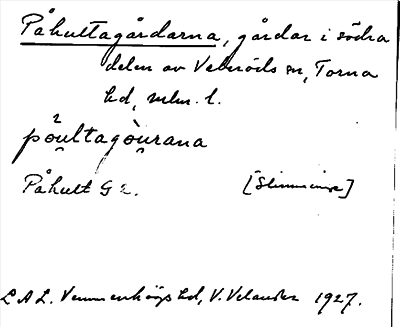 Påhultagårdarna, gårdar i södra
delen av Veberöds sn, Torna
hd, mlm. l.
pŏultagòurana
Påhult G 2. [Slimminge]
L A L. Vemmenhögs hd, V. Velander 1927.